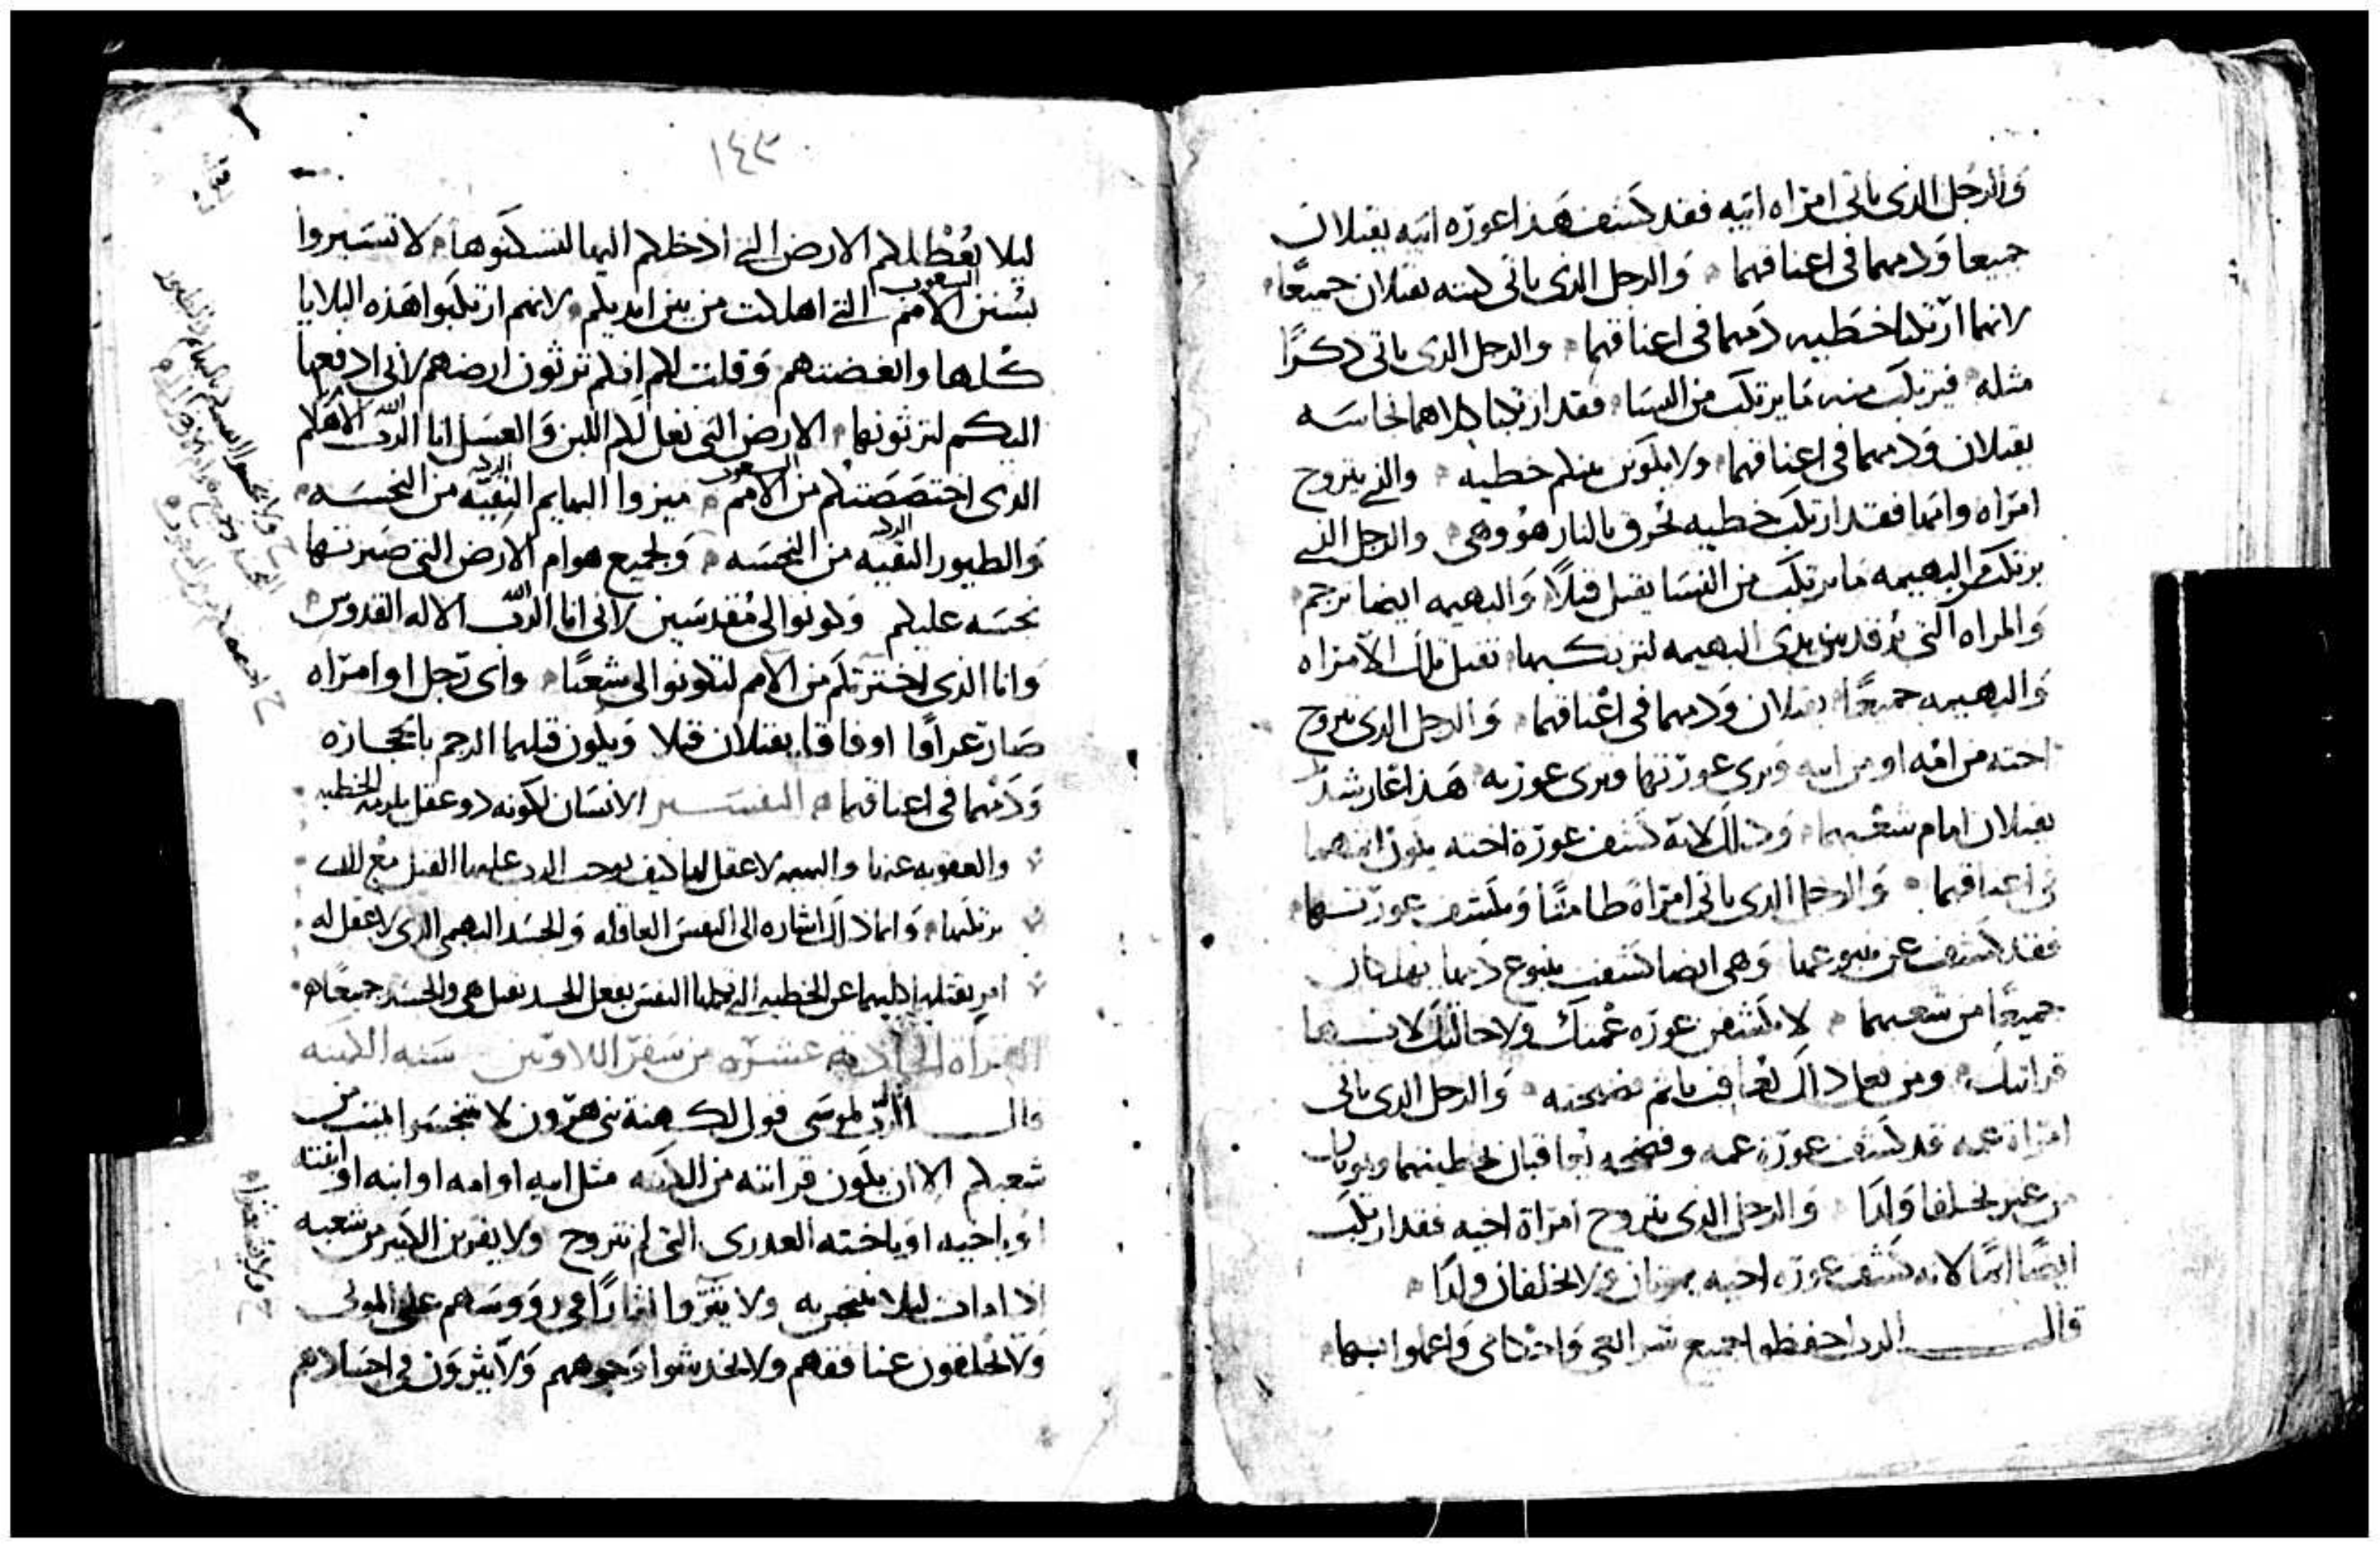 والرجل الذى ياتى امراه ابيه فقد كشف هذا عورة ابيه يقتلان
جميعا ودمهما فى اعناقهما والرجل الذى ياتى كنته يقتلان جميعًا
لانهما ارتكبا خطيه دمهما فى اعناقهما والرجل الذى ياتى ذكرًا
مثله فيرتكب منه ما يرتكب من النسا فقد ارتكبا كلاهما نجاسه
يقتلان ودمهما فى اعناقهما ولا يكون منكم خطيه والذى يتزوج
امراه وامها فقد ارتكب خطيه تحرق بالنار هو وهى والرجل الذى
يرتكب من البهيمه ما يرتكب من النسا يقتل قتلًا والبهيمه ايضا ترجم
والمراه التى ترقد بين يدى البهيمه لترتكبها تقتل تلك الامراه
والبهيمه جميعًا يقتلان ودمهما فى اعناقهما والرجل الذى يتزوج
اخته من امه او من ابيه ويرى عورتها وترى عورته هذا عار شديد
يقتلان امام شعبهما وذلك لانه كشف عورة اخته يكون اثمهما
فى اعناقهما والرجل الذى ياتى امراة طامثًا ويكشف عورتها
فقد كشف عن ينبوعها وهى ايضا كشفت ينبوع دمها يهلكان
جميعًا من شعبهما لا تكشف عورة عمتك ولا خالتك لانها
قرابتك ومن فعل ذلك يعاقب باثم فضيحته والرجل الذى ياتى
امراة عمه قد كشف عورة عمه وفضحه يعاقبان بخطيتهما ويموتان
من غير يخلفا ولدا والرجل الذى يتزوج امراة اخيه فقد ارتكب
ايضًا اثمًا لانه كشف عورة اخيه يموتان ولا يخلفان ولدا
قال الرب احفظوا جميع شرائعى واحكامى واعملوا بها
١٤٣
ليلا تعطلكم الارض التى ادخلكم اليها لتسكنوها لا تسيروا
الشعوب
بسنن الامم التى اهلكت من بين ايديكم لانهم ارتكبوا هذه البلايا
كلها وابغضتهم وقلت لكم انكم ترثون ارضهم لانى ادفعها
اليكم لترثونها الارض التى تغل لكم اللبن والعسل انا الله الرب الاهكم
الشعوب
الذى اختصصتكم من الامم ميزوا البهايم النقيه من النجسه
والطيور النقيه من النجسه ولجميع هوام الارض التى صيرتها
نجسه عليكم وكونوا لى مقدسين لانى انا الله الرب الاله القدوس
وانا الذى اخترتكم من الامم لتكونوا لى شعبًا واى رجل او امراه
صار عرافا او فاقا يقتلان قتلا ويكون قتلهما الرجم بالحجاره
ودمهما فى اعناقهما التفسير الانسان لكونه ذو عقل يلزمه الخطيه
والعقوبه عنها والبهيمه لا عقل لها كيف يوجب الرب عليها القتل مع الذى
يرتكبها وانما ذلك اشاره الى النفس العاقله والجسد البهيمى الذى لا عقل له
امر بقتلهما كليهما عن الخطيه التى تفعلها النفس بفعل الجسد تقتل هى والجسد جميعًا
القراة الحاديه عشره من سفر اللاويين سنه الكهنه
قال الرب لموسى قول لكهنة بنى هرون لا تتنجسوا بميت من
شعبكم الا ان يكون قرابته من الكهنه مثل ابيه او امه او ابنه او ابنته
او باخيه او باخته العذرى التى لم تتزوج ولا يقربن الكبير من شعبه
اذا مات ليلا يتنجس به ولا يثروا اثارًا فى رووسهم على الموتى
ولا يحلقون عنافقهم ولا يخدشوا وجوههم ولا يثرون فى اجسادهم